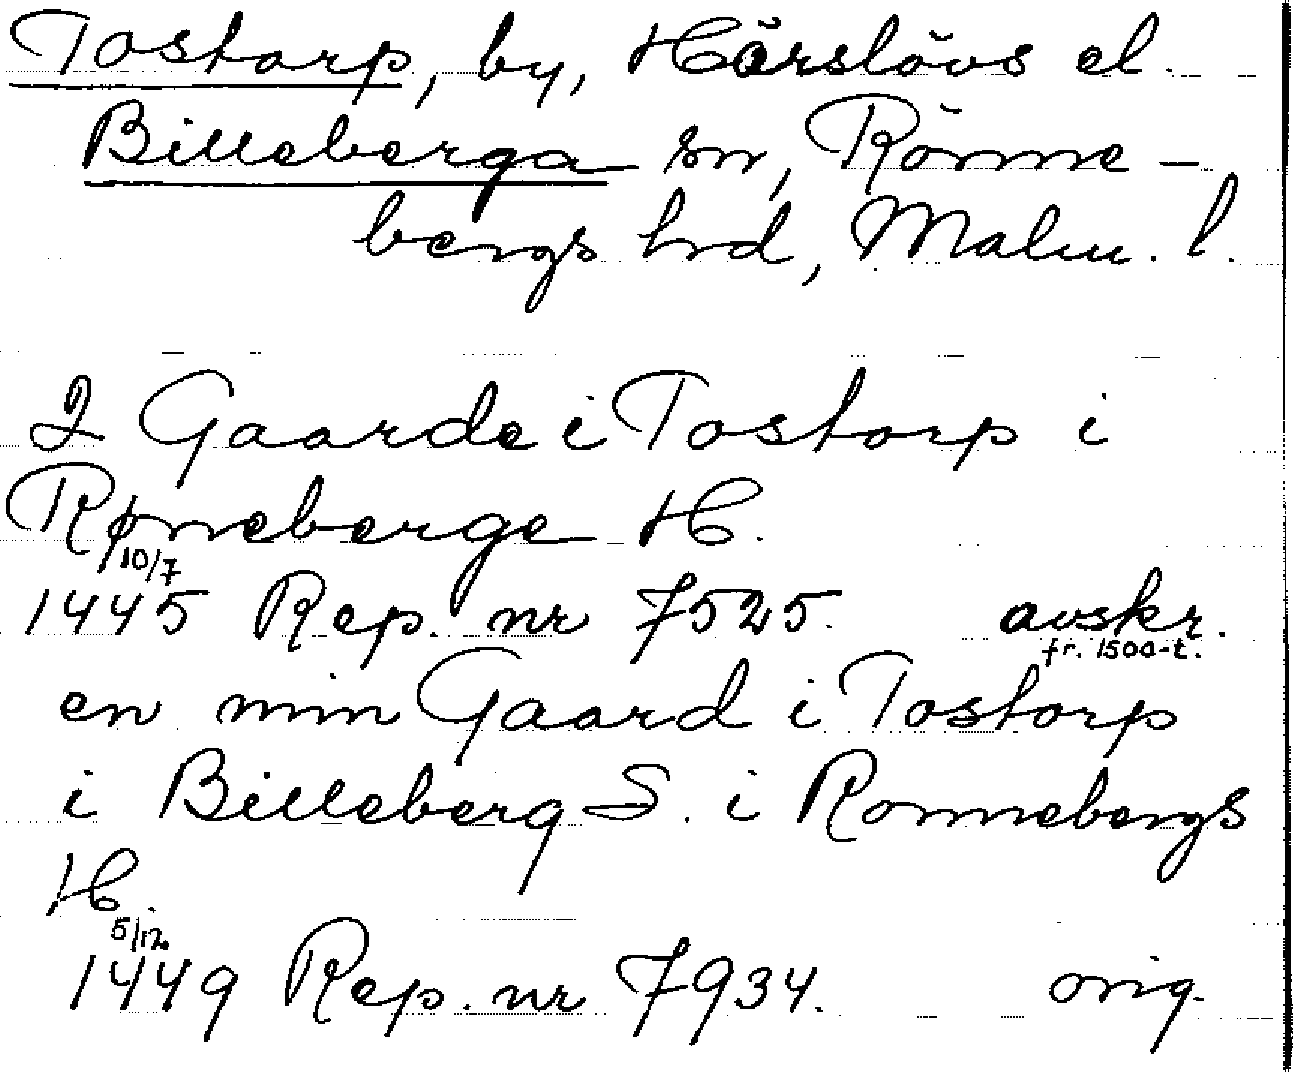 Tostorp, by, Härslövs el.
Billeberga sn, Rönne-
bergs hrd, Malm. l.
2 Gaarde i Tostorp i
Rønneberge H.
10/7
1445 Rep. nr 7525. avskr.
fr. 1500-t.
en min Gaard i Tostorp
i Billeberg S. i Ronnebergs
H.
5/12
1449 Rep. nr 7934. orig.